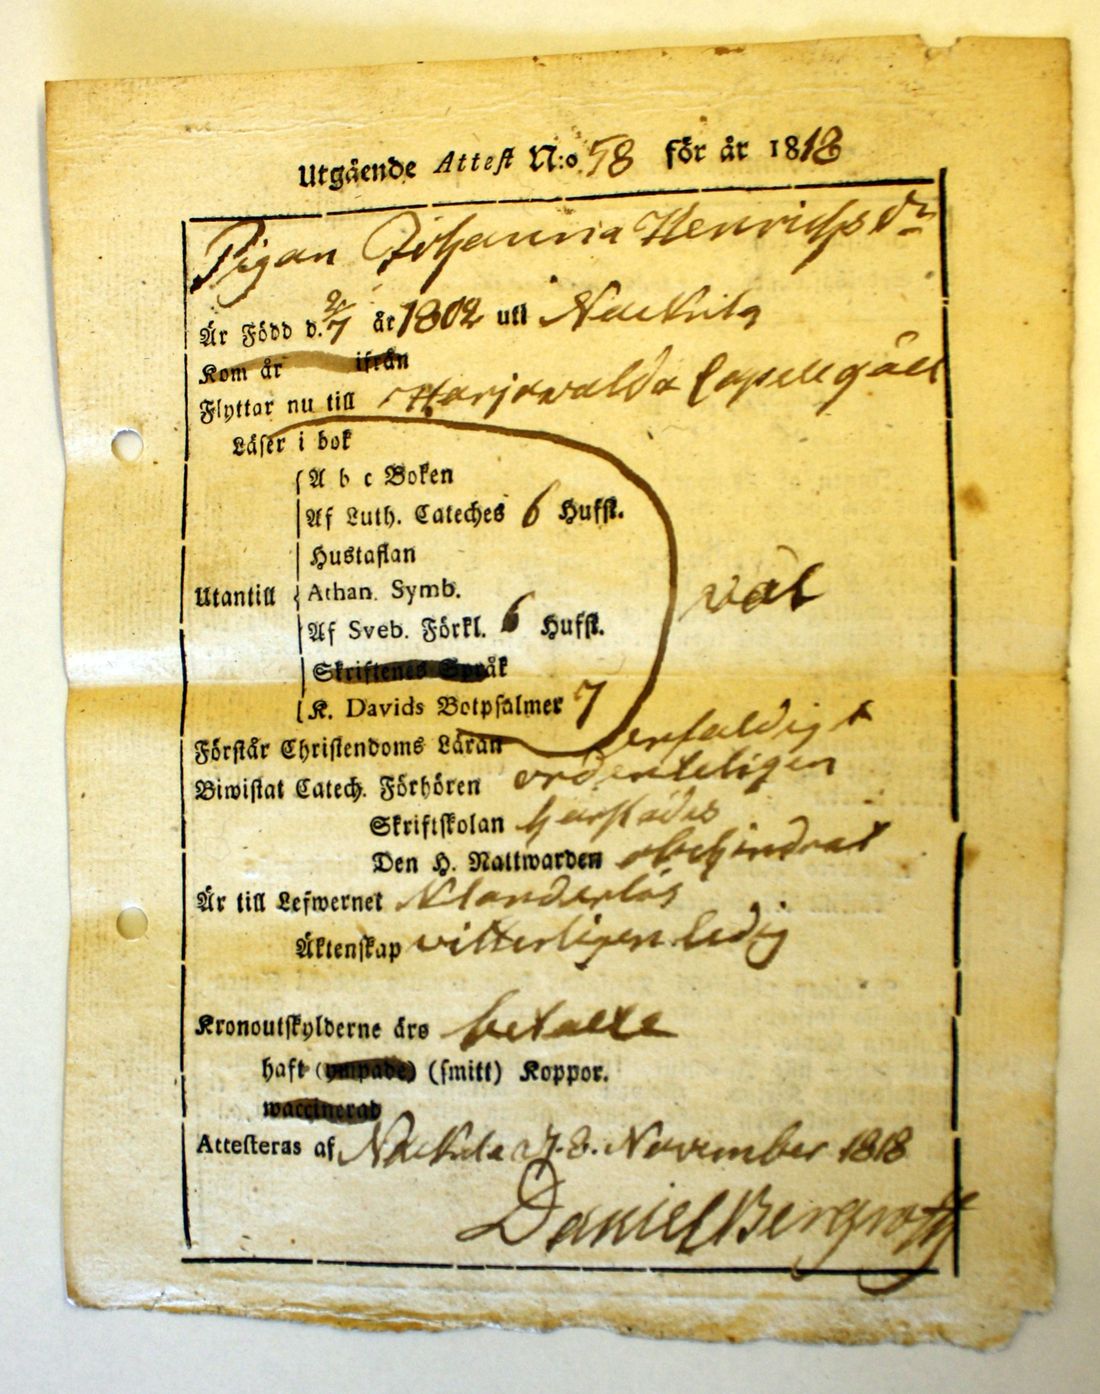 Utgående Attest N:o 58 för år 1818
Pigan Johanna Henrichsdr
Är Född d. 2/7 år 1802 uti Nackila
Kom år ifrån
Flyttar nu till Harjawalda Capell gäll
Läser i bok
A b c Boken
Af Luth. Cateches 6 Hufst.
Hustaflan
Utantill Athan. Symb. väl
Af Sveb. Förkl. 6 Hufst.
Skriftenes Språk
K. Davids Botpsalmer 7
Förstår Christendoms Läran enfaldigt
Biwistat Catech. Förhören ordenteligen
Skriftskolan härstädes
Den H. Nattwarden obehindrat
Är till Lefwernet Klanderlös
Äktenskap vitterligen ledig
Kronoutskylderne äro betalte
haft (ympade) (smitt) Koppor.
waccinerad
Attesteras af Nackila d. 8. November 1818
Daniel Bergroth